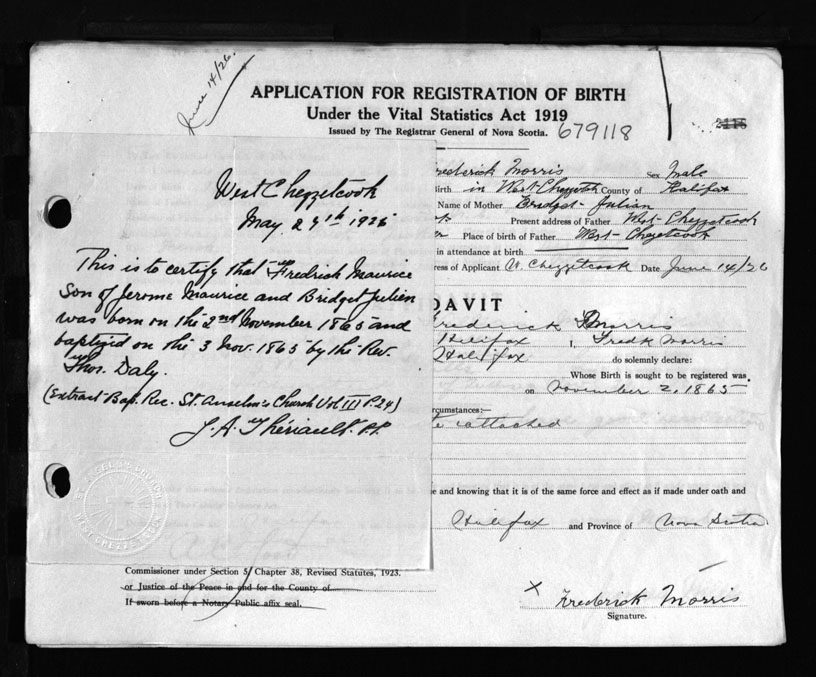 June 14/26.
APPLICATION FOR REGISTRATION OF BIRTH
Under the Vital Statistics Act 1919
Issued by The Registrar General of Nova Scotia. 679118
2115
West Chezzetcook
May 29th 1925
This is to certify that Fredrick Maurice
Son of Jerome Maurice and Bridget Julien
was born on the 2nd November 1865 and
baptized on the 3 Nov. 1865 by the Rev.
Thos. Daly.
(Extract Bap. Rec. St. Anselm's Church Vol III P. 24)
J. A. Thériault. P.P.
rederick Morris Sex Male
Birth in West Chezzetcook County of Halifax
Name of Mother Bridget Julian
Present address of Father West Chezzetcook
Place of birth of Father West Chezetcook
in attendance at birth
ress of Applicant W. Chezzetcook Date June 14/26
DAVIT
Frederick Morris
Halifax I, Fredk Morris
Halifax do solemnly declare:
Whose Birth is sought to be registered was
on November 2, 1865
rcumstances:—
te attached
e and knowing that it is of the same force and effect as if made under oath and
Halifax and Province of Nova Scotia
Commissioner under Section 5, Chapter 38, Revised Statutes, 1923.
or Justice of the Peace in and for the County of
If sworn before a Notary Public affix seal.
x Frederick Morris
Signature.